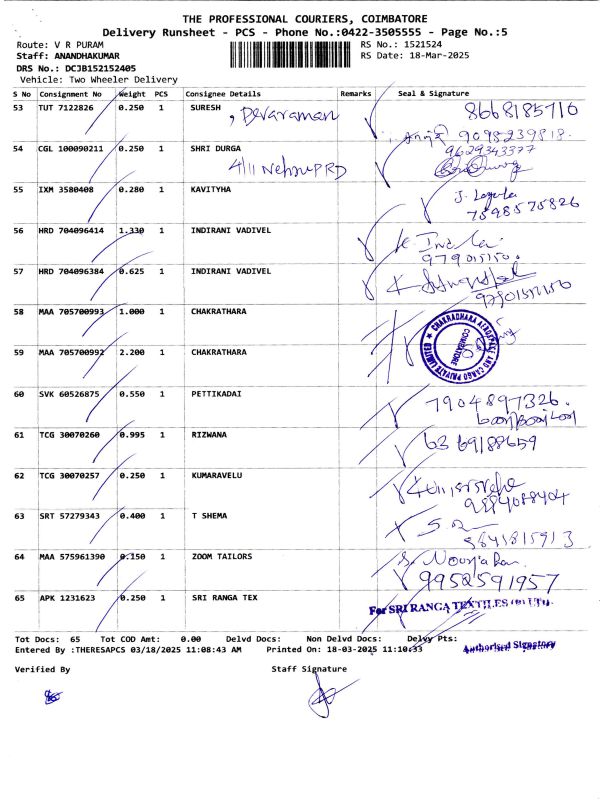 THE PROFESSIONAL COURIERS, COIMBATORE
Delivery Runsheet - PCS - Phone No.:0422-3505555 - Page No.:5
Route: V R PURAM RS No.: 1521524
Staff: ANANDHAKUMAR RS Date: 18-Mar-2025
DRS No.: DCJB152152405
Vehicle: Two Wheeler Delivery
S No Consignment No Weight PCS Consignee Details Remarks Seal & Signature
53 TUT 7122826 0.250 1 SURESH 8668185710
, Devaraman
9098239818.
54 CGL 100090211 0.250 1 SHRI DURGA 9629343377
4/11 Nehru P RD
55 IXM 3580408 0.280 1 KAVITYHA
7598575826
56 HRD 704096414 1.330 1 INDIRANI VADIVEL
9790151150.
57 HRD 704096384 0.625 1 INDIRANI VADIVEL
58 MAA 705700993 1.000 1 CHAKRATHARA
CHAKRADHARA AEROSPACE AND CARGO PRIVATE LIMITED
COIMBATORE
59 MAA 705700992 2.200 1 CHAKRATHARA
60 SVK 60526875 0.550 1 PETTIKADAI 7904897326.
61 TCG 30070260 0.995 1 RIZWANA 6369188659
62 TCG 30070257 0.250 1 KUMARAVELU
9884088404
63 SRT 57279343 0.400 1 T SHEMA
9841815913
64 MAA 575961390 0.150 1 ZOOM TAILORS
9952591957
65 APK 1231623 0.250 1 SRI RANGA TEX For SRI RANGA TEXTILES (P) LTD.
Tot Docs: 65 Tot COD Amt: 0.00 Delvd Docs: Non Delvd Docs: Delvy Pts:
Entered By :THERESAPCS 03/18/2025 11:08:43 AM Printed On: 18-03-2025 11:10:33 Authorised Signatory
Verified By Staff Signature